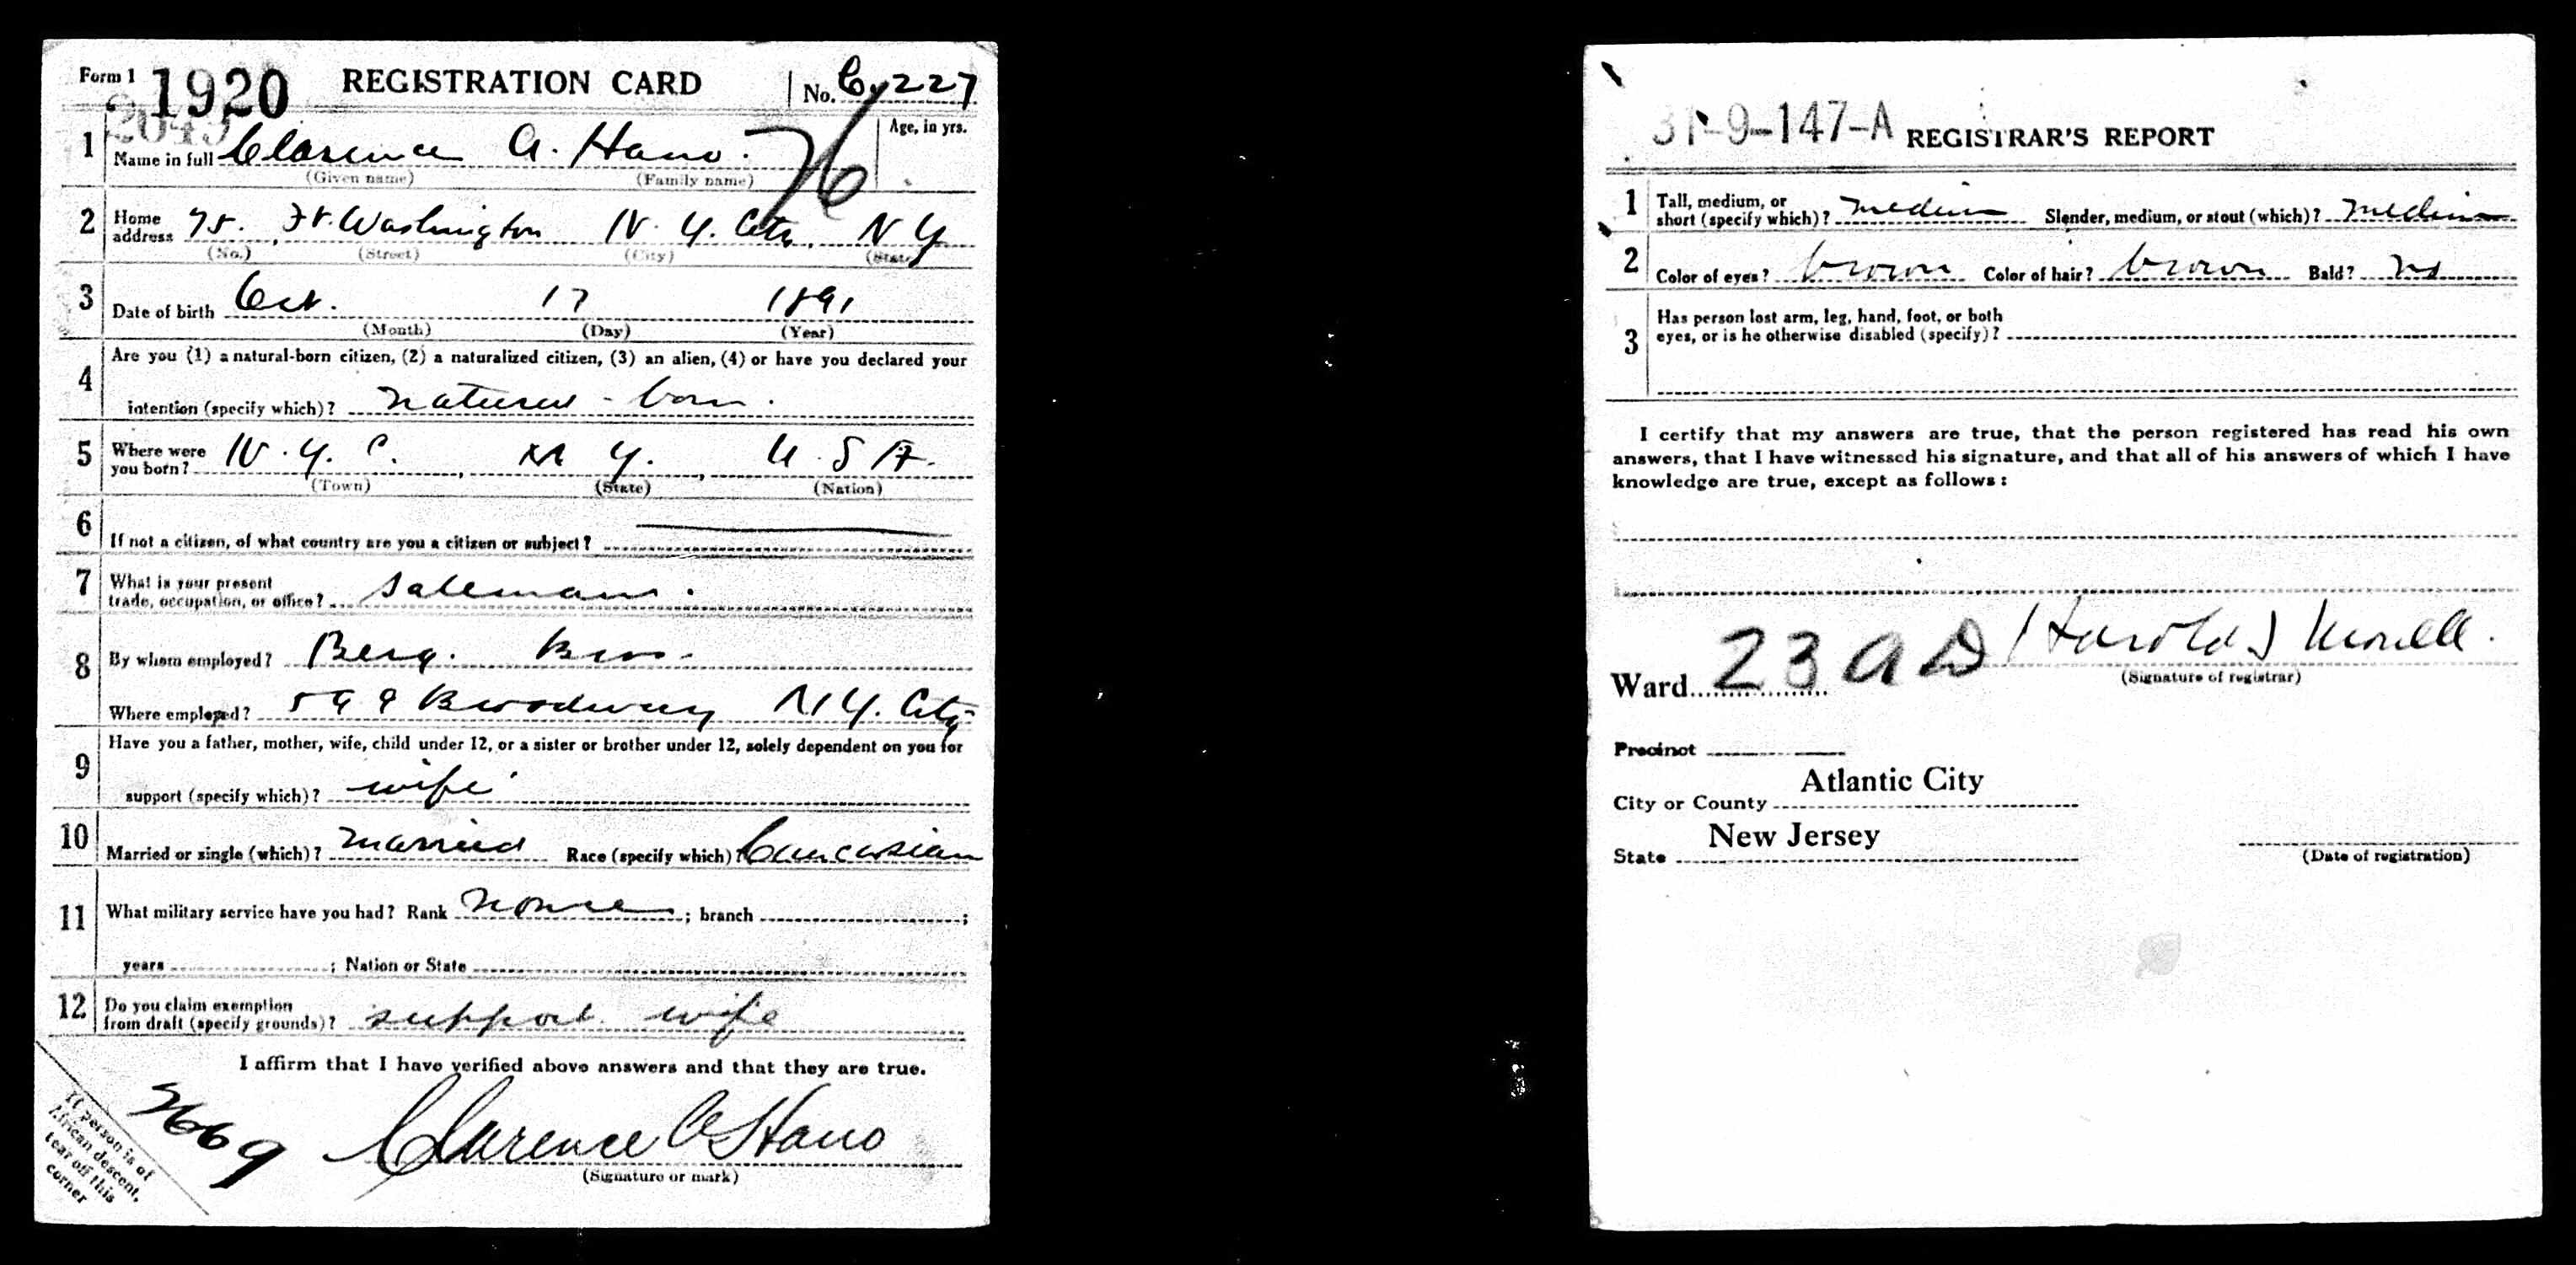 Form 1 1920 REGISTRATION CARD No. 227
1 Name in full Clarence A. Hano. 26 Age, in yrs.
(Given name) (Family name)
2 Home address 75. Ft. Washington N. Y. City, N Y
(No.) (Street) (City) (State)
3 Date of birth Oct. 17 1891
(Month) (Day) (Year)
4 Are you (1) a natural-born citizen, (2) a naturalized citizen, (3) an alien, (4) or have you declared your
intention (specify which)? natural - born.
5 Where were you born? N. Y. C., N Y., U. S A.
(Town) (State) (Nation)
6 If not a citizen, of what country are you a citizen or subject?
7 What is your present trade, occupation, or office? salesman.
8 By whom employed? Berg. Bros.
Where employed? 599 Broadway N. Y. City
9 Have you a father, mother, wife, child under 12, or a sister or brother under 12, solely dependent on you for
support (specify which)? wife
10 Married or single (which)? married Race (specify which)? Caucasian
11 What military service have you had? Rank none ; branch ;
years ; Nation or State
12 Do you claim exemption from draft (specify grounds)? support wife
I affirm that I have verified above answers and that they are true.
Clarence A Hano
(Signature or mark)
If person is of
African descent,
tear off this
corner
2669
31-9-147-A REGISTRAR'S REPORT
1 Tall, medium, or short (specify which)? medium Slender, medium, or stout (which)? medium
2 Color of eyes? brown Color of hair? brown Bald? no
3 Has person lost arm, leg, hand, foot, or both
eyes, or is he otherwise disabled (specify)?
I certify that my answers are true, that the person registered has read his own
answers, that I have witnessed his signature, and that all of his answers of which I have
knowledge are true, except as follows:
Harold J
(Signature of registrar)
Ward 23 A D
Precinct
City or County Atlantic City
State New Jersey
(Date of registration)